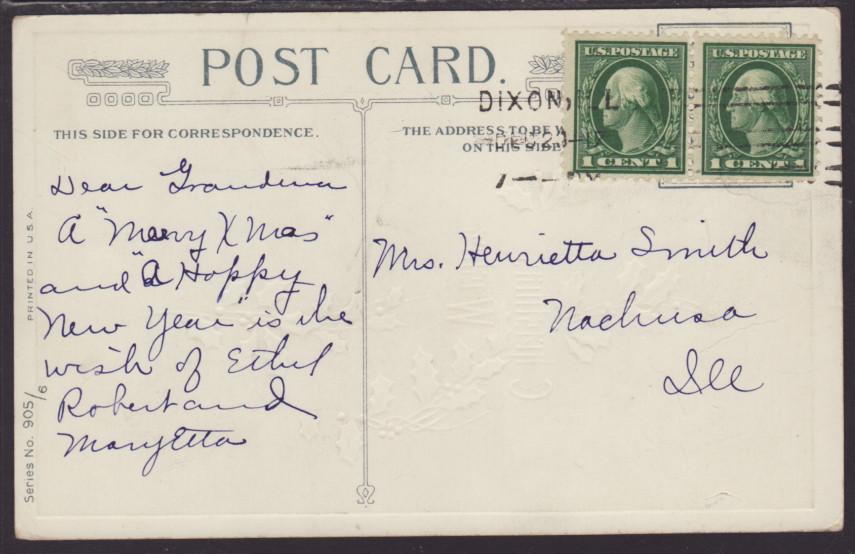 POST CARD.
U.S. POSTAGE
U.S. POSTAGE
1 CENT 1
1 CENT 1
DIXON, ILL
THIS SIDE FOR CORRESPONDENCE.
THE ADDRESS TO BE W
ON THIS SIDE
Dear Grandma
A "Merry X Mas"
and "A Happy
New Year" is the
wish of Ethel
Robert and
MaryEtta
Mrs. Henrietta Smith
Nachusa
Ill
PRINTED IN U.S.A.
Series No. 905/6